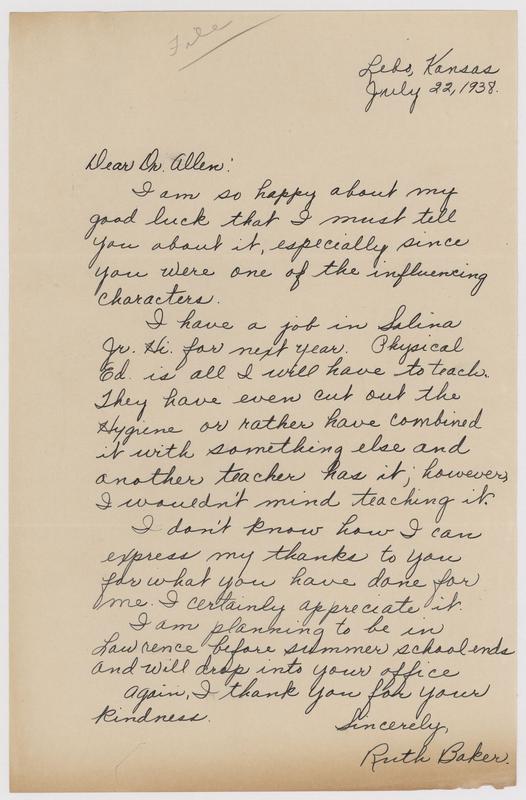 File
Lebo, Kansas
July 22, 1938.
Dear Dr. Allen:
I am so happy about my
good luck that I must tell
you about it, especially since
you were one of the influencing
characters.
I have a job in Salina
Jr. Hi. for next year. Physical
Ed. is all I will have to teach.
They have even cut out the
Hygiene or rather have combined
it with something else and
another teacher has it; however,
I wouldn't mind teaching it.
I don't know how I can
express my thanks to you
for what you have done for
me. I certainly appreciate it.
I am planning to be in
Lawrence before summer school ends
and will drop into your office
Again, I thank you for your
kindness.
Sincerely,
Ruth Baker.